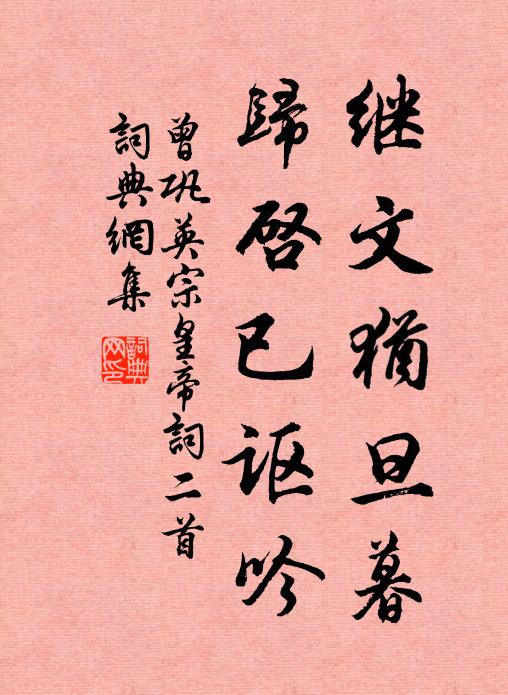 继文犹旦暮
歸啓已讴吟
曾巩英宗皇帝詞二首
詞典網集
詞典
网印